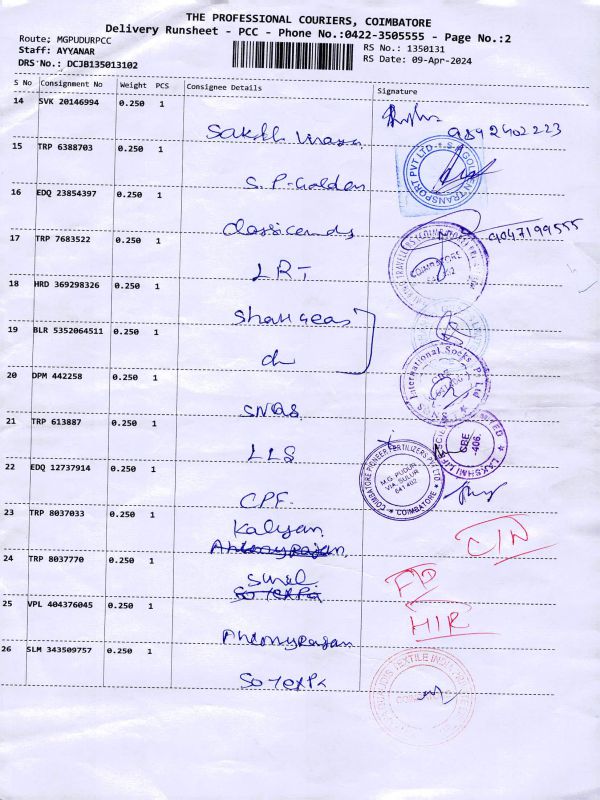 THE PROFESSIONAL COURIERS, COIMBATORE
Delivery Runsheet - PCC - Phone No.:0422-3505555 - Page No.:2
Route; MGPUDURPCC
RS No.: 1350131
Staff: AYYANAR
RS Date: 09-Apr-2024
DRS No.: DCJB135013102
S No Consignment No Weight PCS Consignee Details Signature
14 SVK 20146994 0.250 1
9842402223
15 TRP 6388703 0.250 1
S.P-Golden
16 EDQ 23854397 0.250 1
9047199555
17 TRP 7683522 0.250 1
LRT
18 HRD 369298326 0.250 1
19 BLR 5352064511 0.250 1
20 DPM 442258 0.250 1
SNQS
SNQS International Socks Pvt Ltd
21 TRP 613887 0.250 1
LLS
22 EDQ 12737914 0.250 1
COIMBATORE PIONEER FERTILIZERS PVT LTD
M.G. PUDUR
VIA. SULUR
641-402
COIMBATORE
CPF
23 TRP 8037033 0.250 1
Kalyan
Antonyrajan
24 TRP 8037770 0.250 1
So Texpa
25 VPL 404376045 0.250 1
HIR
26 SLM 343509757 0.250 1
So Texpa